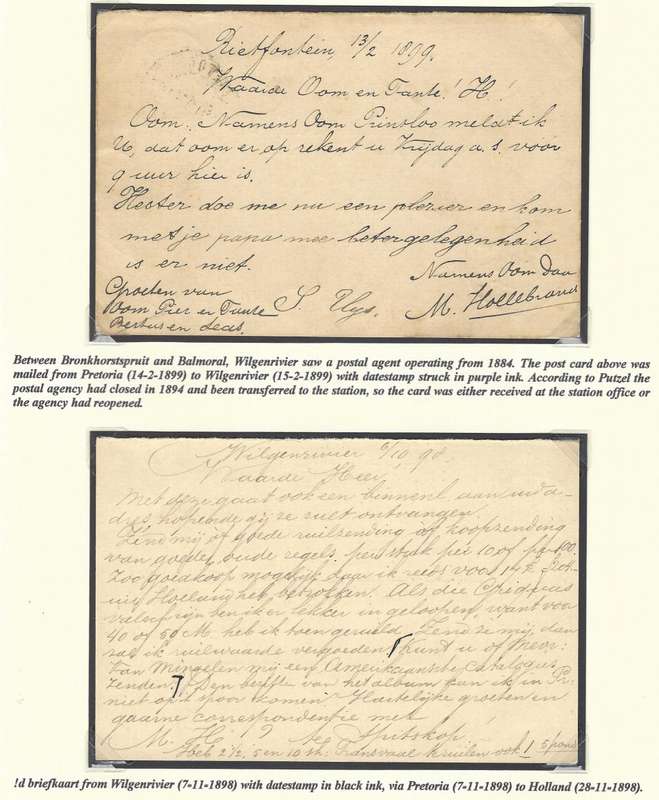 Rietfontein, 13/2 1899.
Waarde Oom en Tante! H!
Oom. Namens Oom Prinsloo meldt ik
U, dat oom er op rekent u Vrijdag a.s. voor
9 uur hier is.
Hester doe me nu een plezier en kom
met je papa mee beter gelegenheid
is er niet.
Namens Oom Daa
Groeten van
Oom Pier en Tante
S. Uys.
M. Hollebrand
Bertus en
Between Bronkhorstspruit and Balmoral, Wilgenrivier saw a postal agent operating from 1884. The post card above was
mailed from Pretoria (14-2-1899) to Wilgenrivier (15-2-1899) with datestamp struck in purple ink. According to Putzel the
postal agency had closed in 1894 and been transferred to the station, so the card was either received at the station office or
the agency had reopened.
Wilgenrivier 6/10 98.
Waarde Heer!
Met deze gaat ook een binnenl. aan uw a-
dres, hopende gij ze zult ontvangen.
Zend mij of goede ruilzending of koopzending
van goede, oude zegels, per stuk per 10 of per 100.
Zoo goedkoop mogelijk, daar ik reeds voor 14
heb betroffen. Als die
valsch zijn ben ik er lekker in geloopen, want voor
40 of 50 M. heb ik toen geruild. Zend ze mij, dan
zal ik ruilwaarde vergoeden. Kunt u of Mevr:
Van Mingelen mij een Amerikaansche Catalogus
zenden? Den van het album kan ik in
niet op 't spoor komen. Hartelijke groeten en
gaarne correspondentie met
M. H. Spitskop.
Heb 2½, 5 en 10 sh. Transvaal te ruilen ook 1 5 pond
!d briefkaart from Wilgenrivier (7-11-1898) with datestamp in black ink, via Pretoria (7-11-1898) to Holland (28-11-1898).